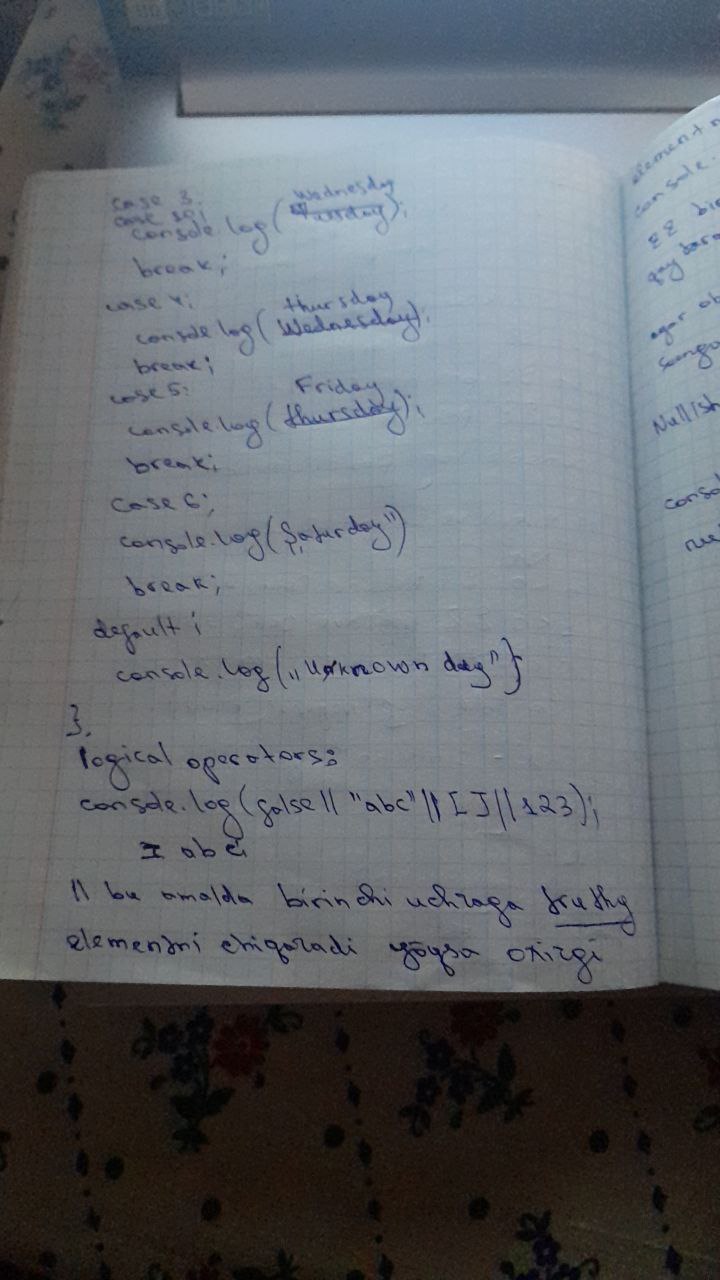 case 3.
console.log(Wednesday);
break;
case 4;
thursday
console.log(Wednesday);
break;
case 5:
Friday
console.log(thursday);
break;
case 6;
console.log("Saturday")
break;
default;
console.log(„Unknown day"}
}.
logical operators:
console.log(false || "abc" || [] || 123);
= abc
|| bu amalda birinchi uchraga truthy
elementni chiqaradi yōqsa oxirgi
element
console.
&& bir
qay
agar
Null